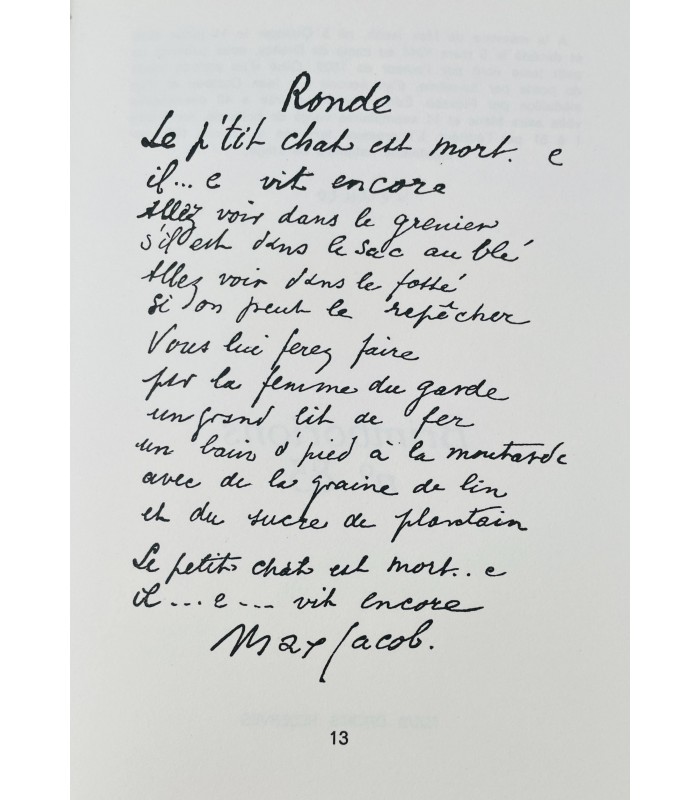 Ronde
Le p'tit chat est mort. e
il... e vit encore
Allez voir dans le grenier
s'il est dans le sac au blé
Allez voir dans le fossé
si on peut le repêcher
Vous lui ferez faire
par la femme du garde
un grand lit de fer
un bain d'pied à la moutarde
avec de la graine de lin
et du sucre de plantain
Le petit chat est mort.. e
il... e... vit encore
Max Jacob.
13